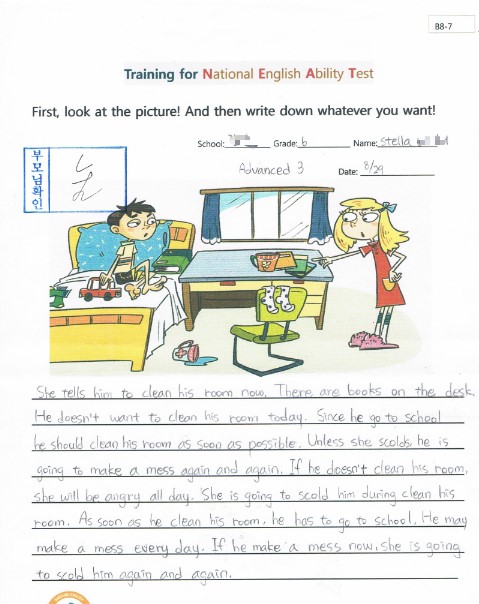 B8-7
Training for National English Ability Test
First, look at the picture! And then write down whatever you want!
School: Grade: 6 Name: Stella
부모님확인
Advanced 3 Date: 8/29
She tells him to clean his room now. There are books on the desk.
He doesn't want to clean his room today. Since he go to school
he should clean his room as soon as possible. Unless she scolds, he is
going to make a mess again and again. If he doesn't clean his room,
she will be angry all day. She is going to scold him during clean his
room. As soon as he clean his room, he has to go to school. He may
make a mess every day. If he make a mess now, she is going
to scold him again and again.